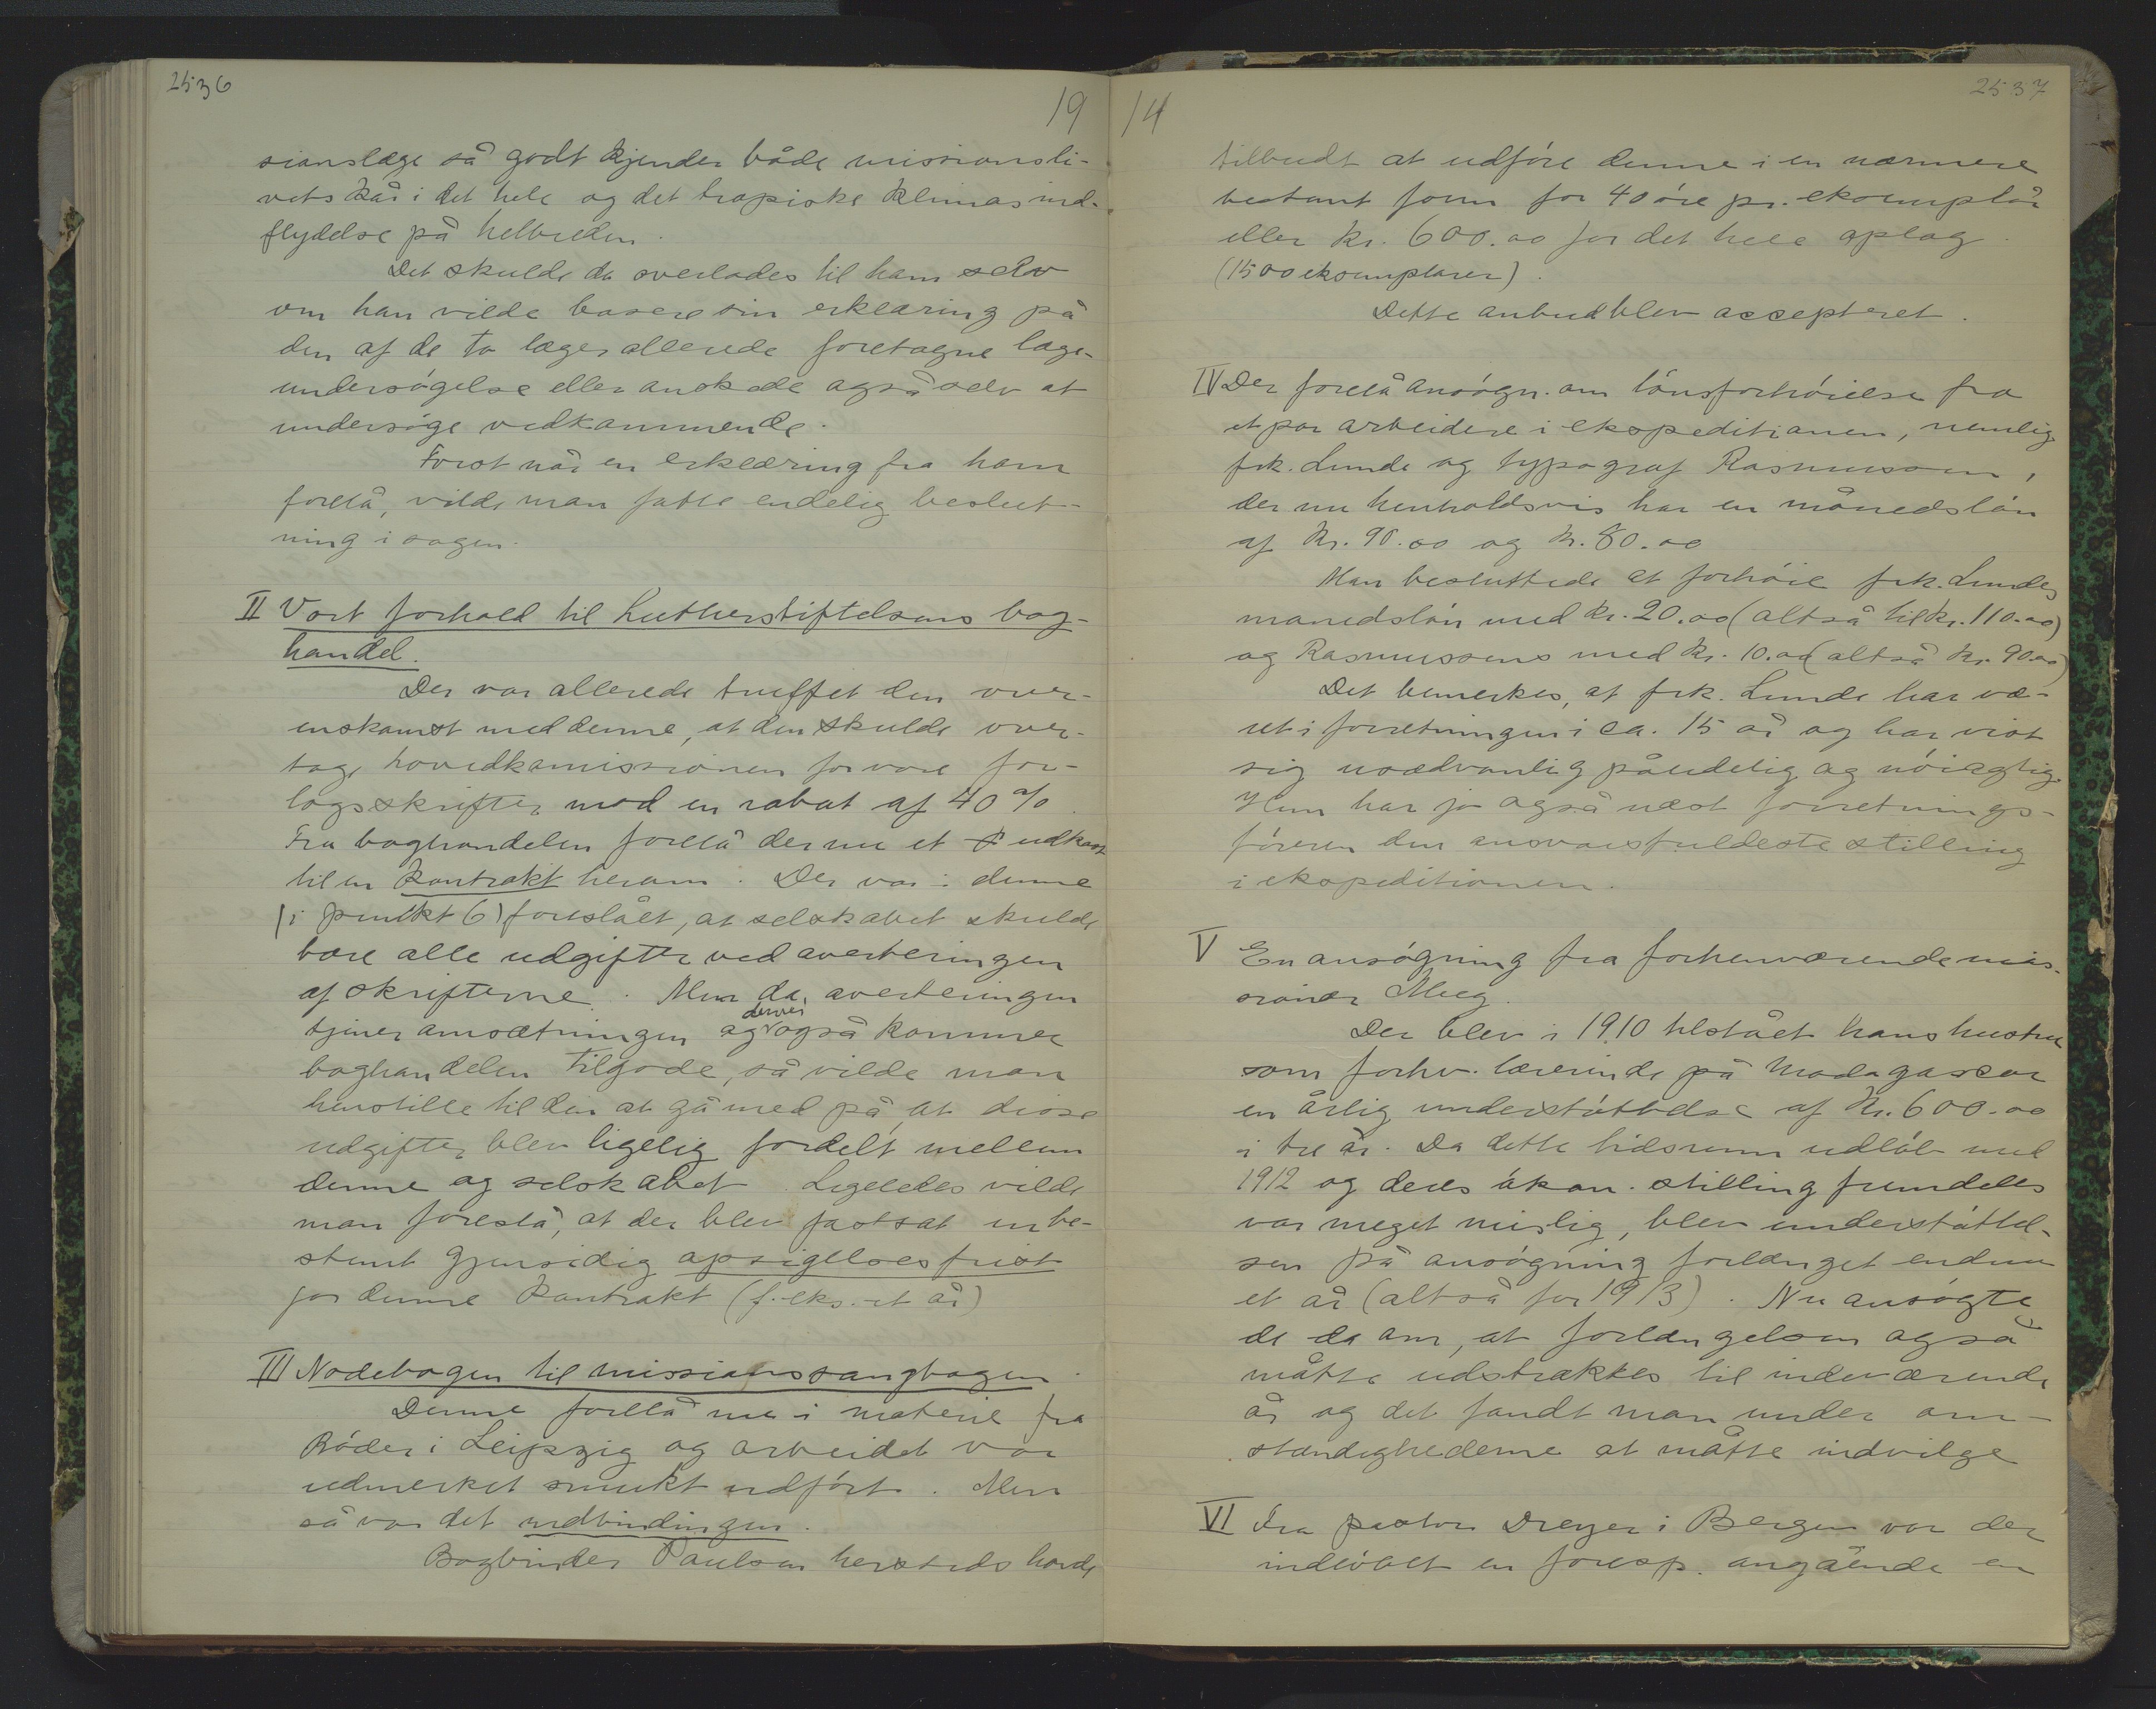 2536
19
sionslæge så godt kjender både missionsli-
vets kår i det hele og det tropiske klimas ind-
flydelse på helbreden.
Det skulde da overlades til ham selv
om han vilde basere sin erklæring på
den af de to læger allerede foretagne læge-
undersøgelse eller ønskede også selv at
undersøge vedkommende.
Først når en erklæring fra ham
forelå, vilde man fatte endelig beslut-
ning i sagen.
II Vort forhold til Lutherstiftelsens bog-
handel.
Der var allerede truffet den over-
enskomst med denne, at den skulde over-
tage hovedkommissionen for vore for-
lagsskrifter mod en rabat af 40 %
Fra boghandelen forelå der nu et udkast
til en kontrakt herom. Der var i denne
(i punkt 6) foreslået, at selskabet skulde
bære alle udgifter ved averteringen
af skrifterne. Men da averteringen
tjener omsætningen og derved også kommer
boghandelen tilgode, så vilde man
henstille til den at gå med på, at disse
udgifter blev ligelig fordelt mellem
denne og selskabet. Ligeledes vilde
man foreslå, at der blev fastsat en be-
stemt gjensidig opsigelsesfrist
for denne kontrakt (f. eks. et år)
III Nodebogen til missionssangbogen.
Denne forelå nu i materie fra
Röder i Leipzig og arbeidet var
udmerket smukt udført. Men
så var det indbindingen.
Bogbinder Paulsen hersteds havde
14
2537
tilbudt at udføre denne i en nærmere
bestemt form for 40 øre pr. eksemplar
eller kr. 600.00 for det hele oplag.
(1500 eksemplarer).
Dette anbud blev accepteret.
IV Der forelå ansøgn. om lønsforhøielse fra
et par arbeidere i ekspeditionen, nemlig
frk. Lunde og typograf Rasmussen,
der nu henholdsvis har en månedsløn
af kr. 90.00 og kr. 80.00
Man besluttede at forhøie frk. Lundes
månedsløn med kr. 20.00 (altså til kr. 110.00)
og Rasmussens med kr. 10.00 (altså kr. 90.00)
Det bemerkes, at frk. Lunde har væ-
ret i forretningen i ca. 15 år og har vist
sig usædvanlig pålidelig og nøiagtig.
Hun har jo også næst forretnings-
føreren den ansvarsfuldeste stilling
i ekspeditionen.
V En ansøgning fra forhenværende mis-
sionær Meeg.
Der blev i 1910 tilstået hans hustru
som forhv. lærerinde på Madagascar
en årlig understøttelse af kr. 600.00
i tre år. Da dette tidsrum udløb med
1912 og deres økon. stilling fremdeles
var meget mislig, blev understøttel-
sen på ansøgning forlænget endnu
et år (altså for 1913). Nu ansøgte
de da om, at forlængelsen også
måtte udstrækkes til indeværende
år og det fandt man under om-
stændighederne at måtte indvilge
VI Fra pastor Dreyer i Bergen var der
indløbet en foresp. angående en